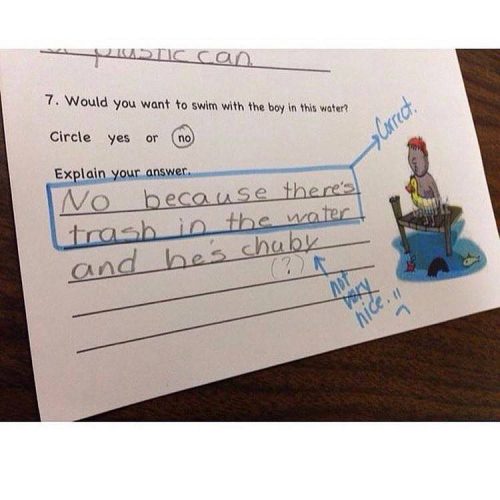 plastic can
7. Would you want to swim with the boy in this water?
Circle yes or no
Correct.
Explain your answer.
No because there's
trash in the water
and he's chuby
(?)
not
very
nice.